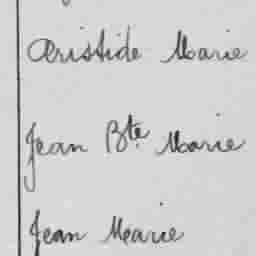 Aristide Marie
Jean Bte Marie
Jean Marie